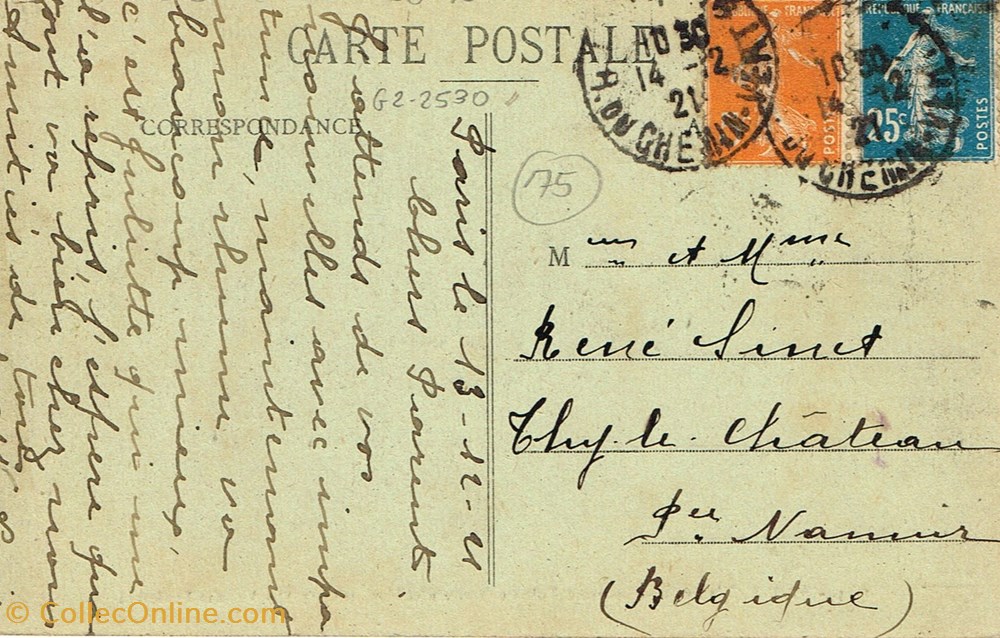 CARTE POSTALE
G2-2530
CORRESPONDANCE
75
REPUBLIQUE FRANÇAISE
POSTES
REPUBLIQUE FRANÇAISE
25c
POSTES
10 30
14 -12
21
R. DU CHEMIN-VERT
10 30
14 -12
21
DU CHEMIN
Paris le 13-12-21
Chers Parents
J'attends de vos
nouvelles avec impa
tience, maintenant
mon rhume va
beaucoup mieux,
c'est Juliette qui me
l'a repris, J'espère que
tout va bien chez vous
Amitiés de tous
Mr et Mme
René Sinet
Thy-le-Château
Per Namur
(Belgique)
© CollecOnline.com